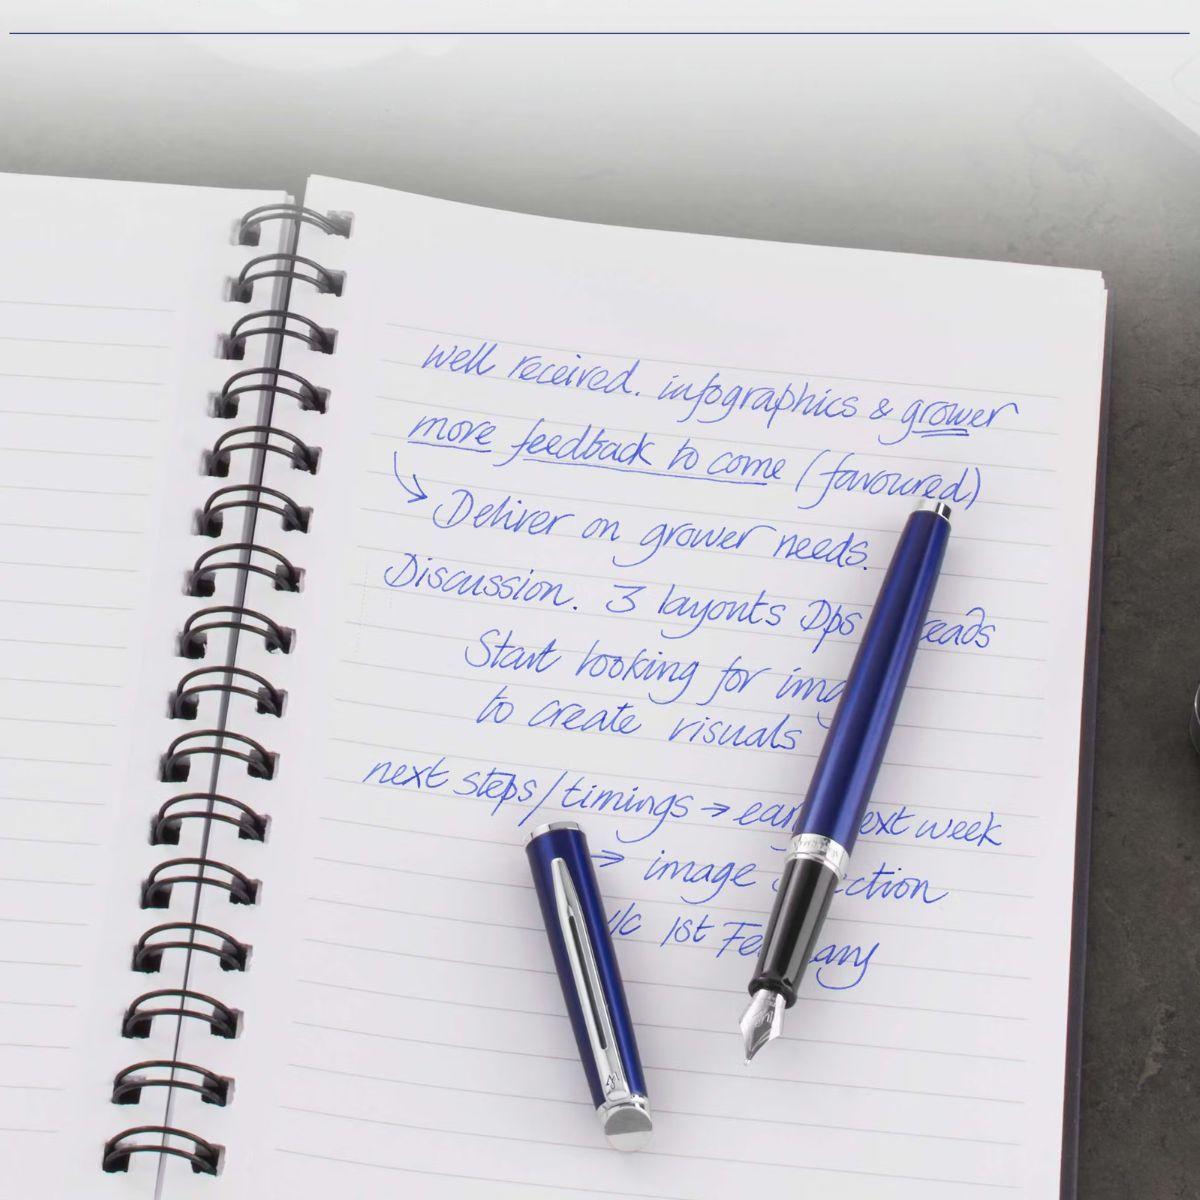 well received. infographics & grower
more feedback to come (favoured)
→ Deliver on grower needs.
Discussion. 3 layouts Dps
Start looking for
to create visuals
next steps/timings → next week
→ image
1st